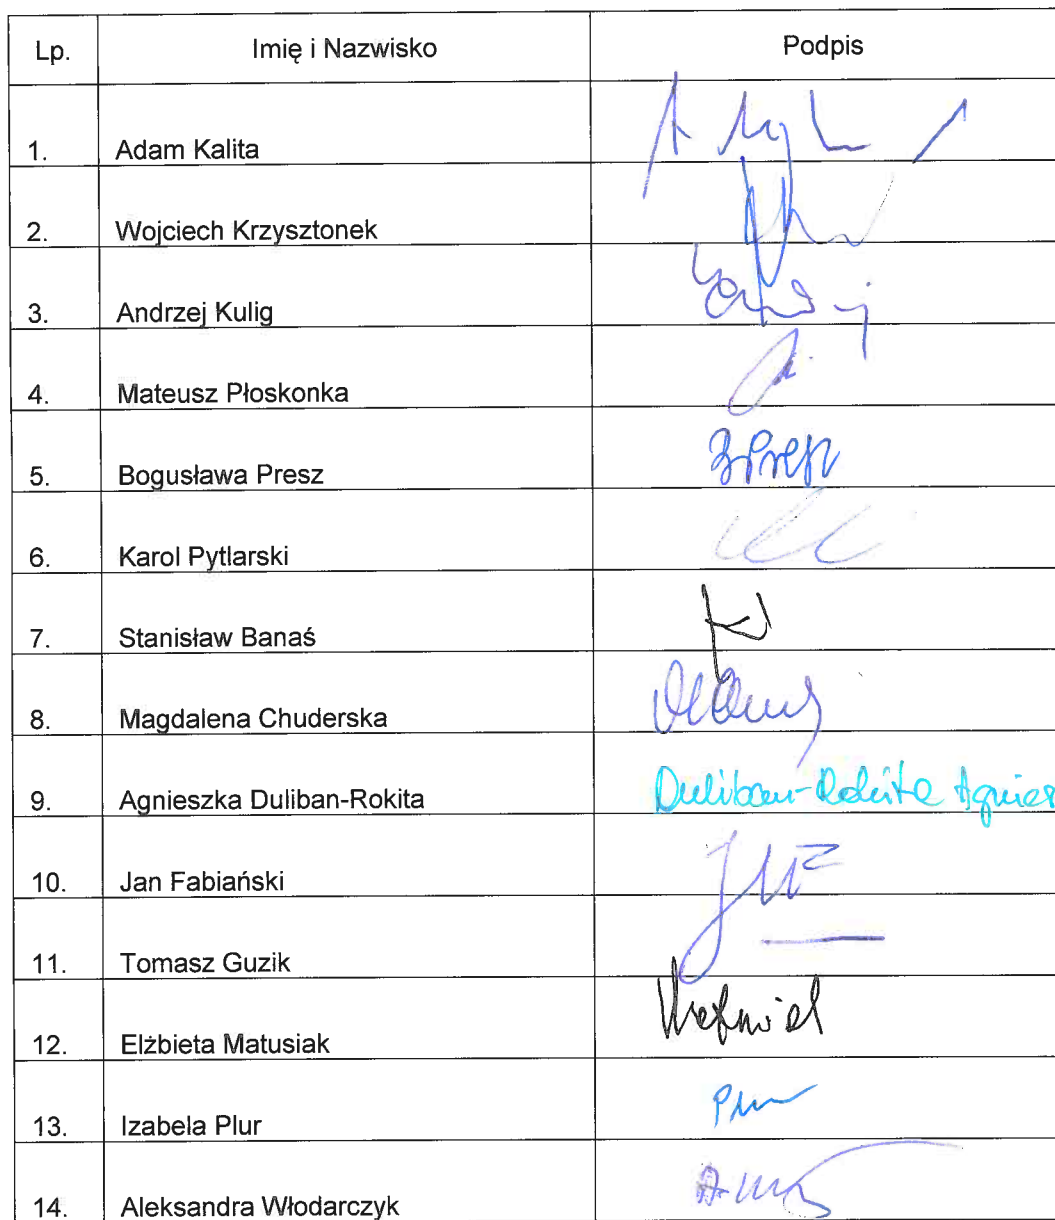 Lp. Imię i Nazwisko Podpis
1. Adam Kalita
2. Wojciech Krzysztonek
3. Andrzej Kulig
4. Mateusz Płoskonka
5. Bogusława Presz
6. Karol Pytlarski
7. Stanisław Banaś
8. Magdalena Chuderska
9. Agnieszka Duliban-Rokita Duliban-Rokita Agnies
10. Jan Fabiański
11. Tomasz Guzik
12. Elżbieta Matusiak
13. Izabela Plur
14. Aleksandra Włodarczyk